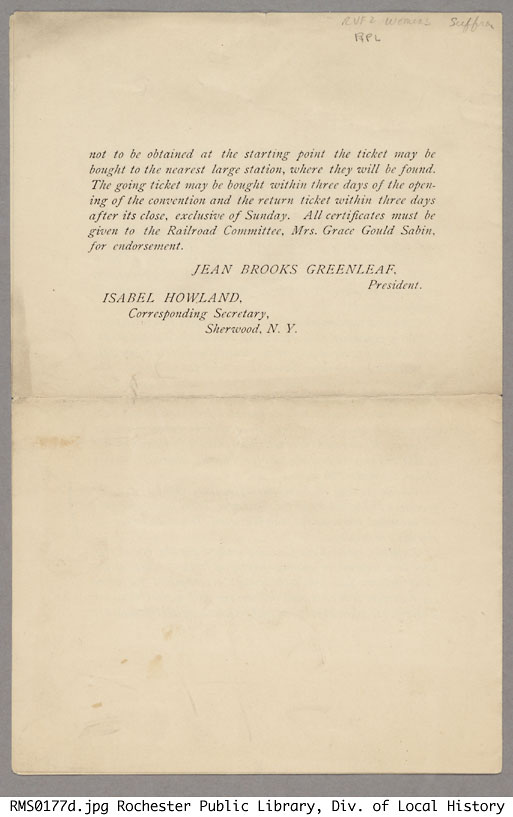 RVF2 Women's Suffra
RPL
not to be obtained at the starting point the ticket may be
bought to the nearest large station, where they will be found.
The going ticket may be bought within three days of the open-
ing of the convention and the return ticket within three days
after its close, exclusive of Sunday. All certificates must be
given to the Railroad Committee, Mrs. Grace Gould Sabin,
for endorsement.
JEAN BROOKS GREENLEAF,
President.
ISABEL HOWLAND,
Corresponding Secretary,
Sherwood, N. Y.
RMS0177d.jpg Rochester Public Library, Div. of Local History